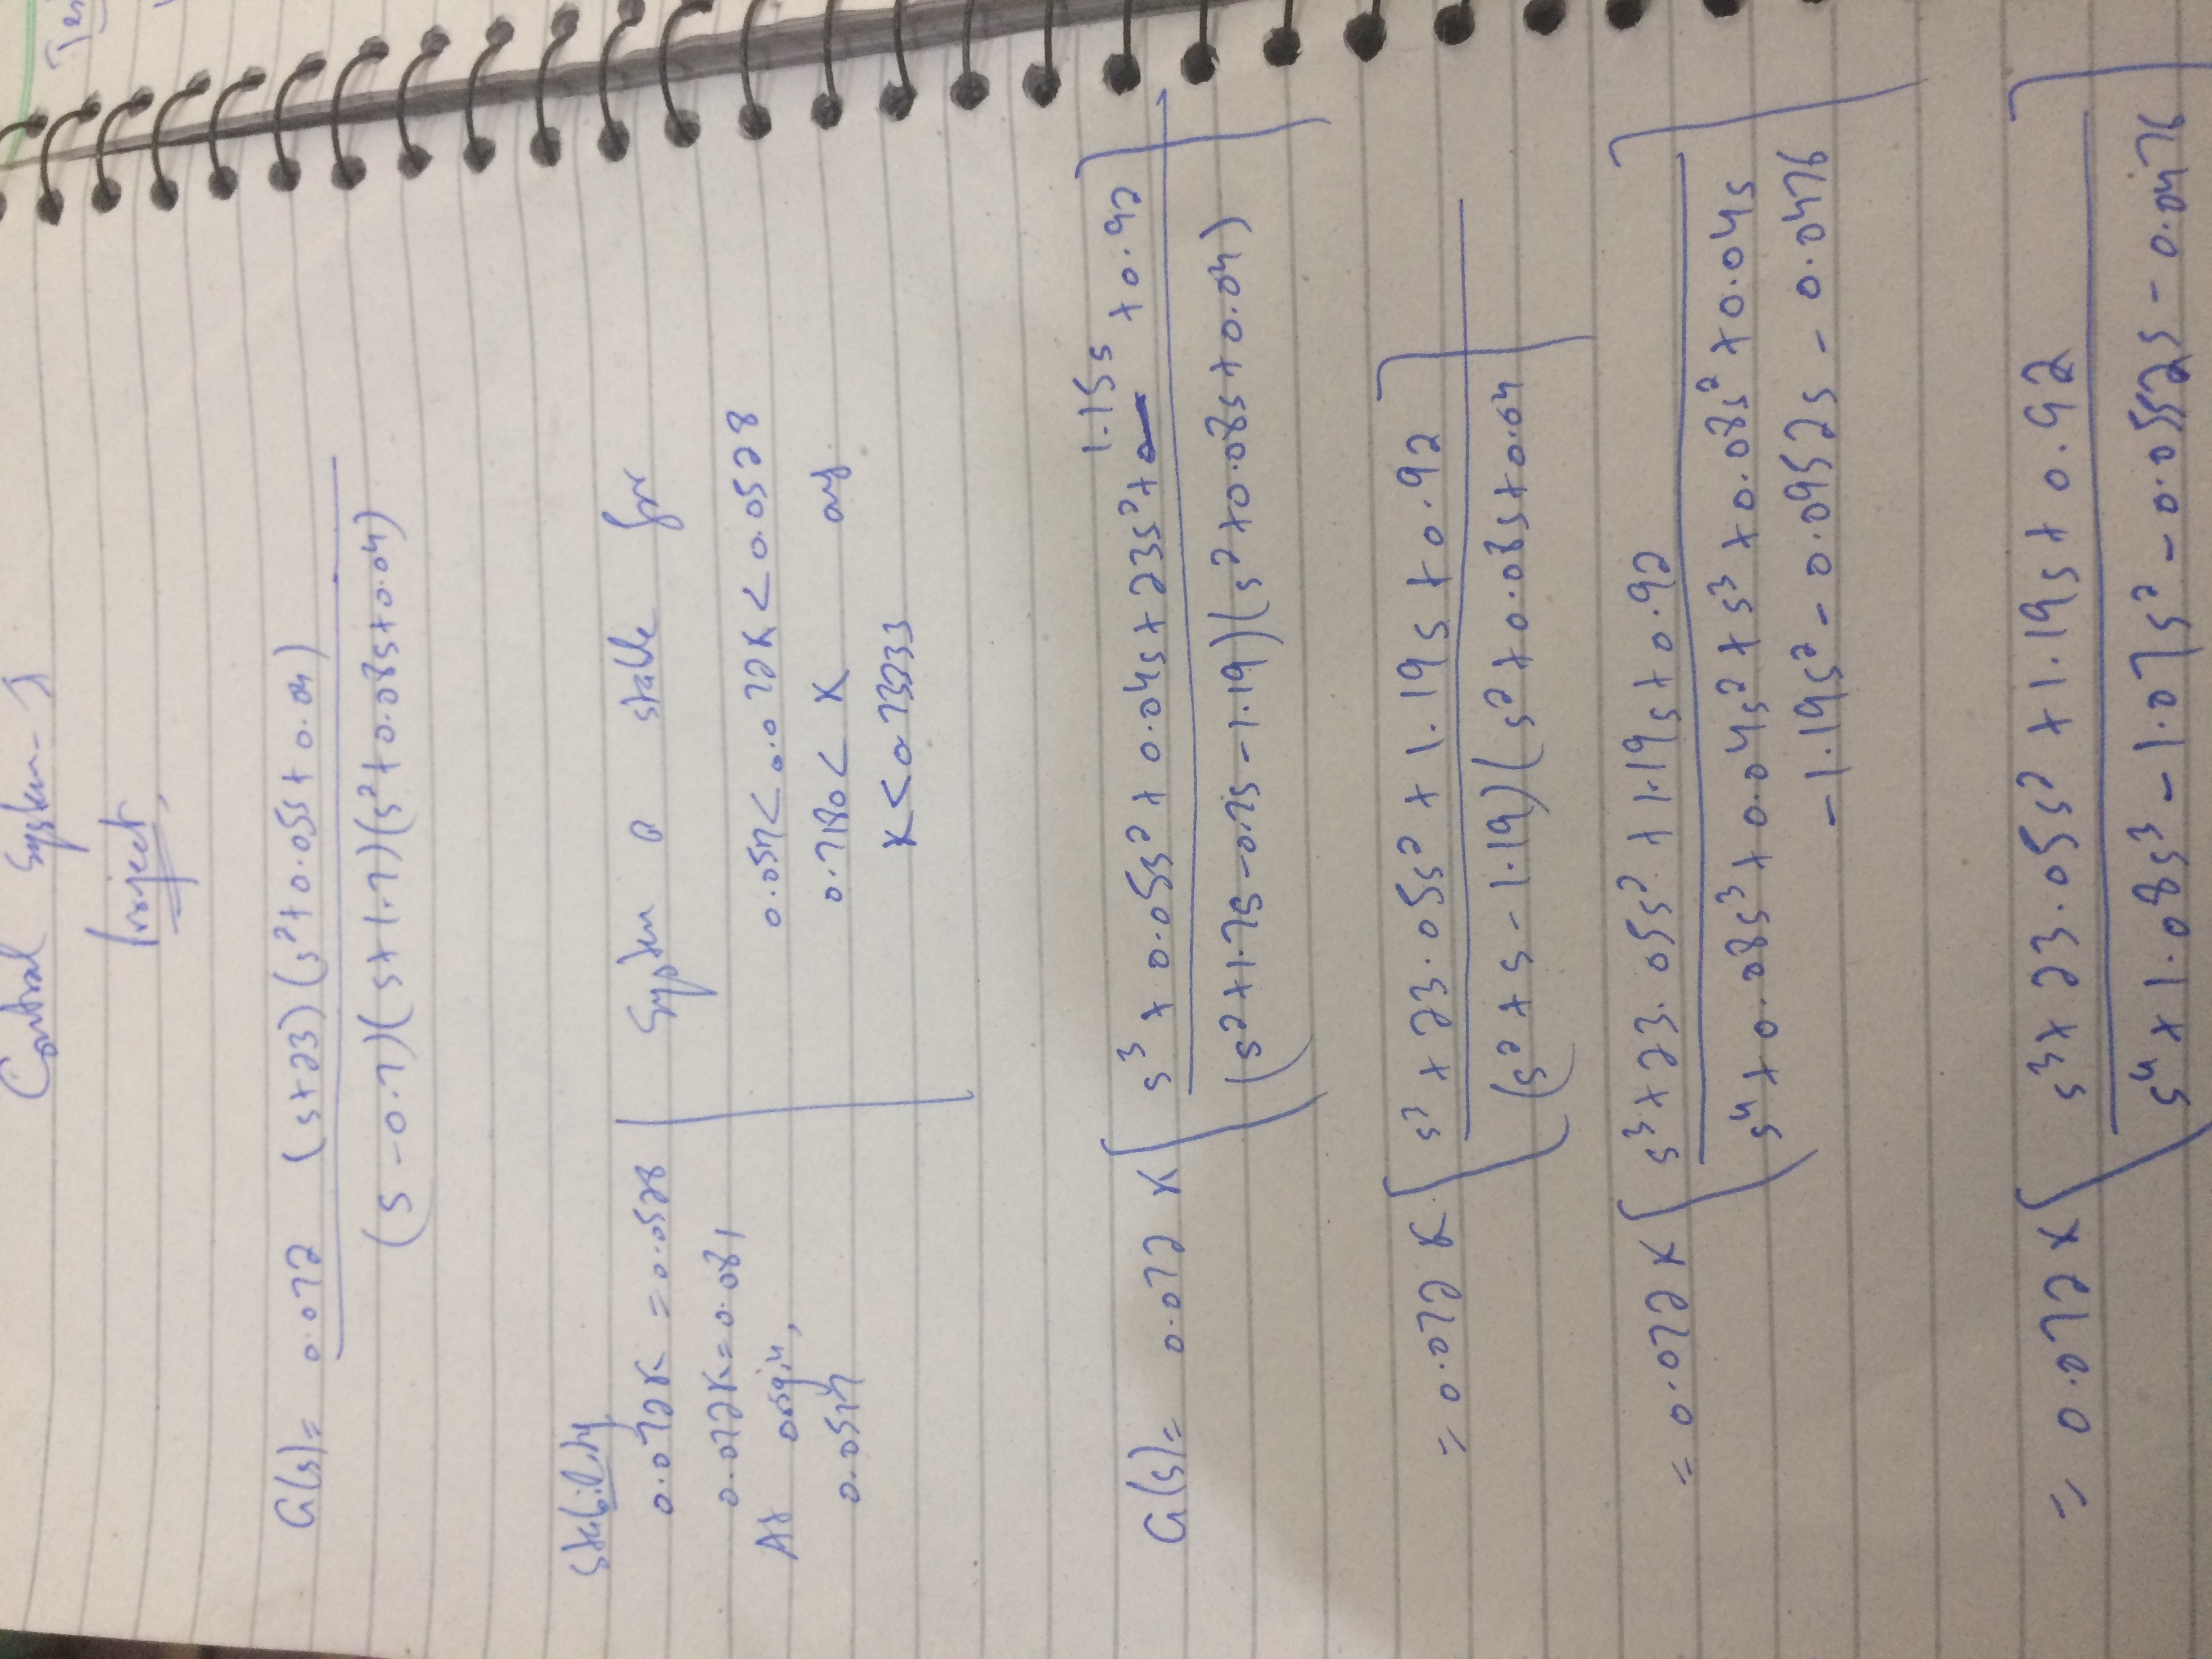 Control System-I
Project
G(s)= 0.072 (s+23)(s²+0.05s+0.04)
(s-0.7)(s+1.7)(s²+0.08s+0.04)
Stability
0.072K = 0.0528
0.072K = 0.081
At origin,
0.0517
System is stable for
0.0517<0.072K<0.0528
0.7180< K and
K<0.73333
G(s)= 0.072 K [ s³+0.05s²+0.04s+23s²+1.15s+0.92
(s²+1.7s-0.7s-1.19)(s²+0.08s+0.04) ]
= 0.072 K [ s³+23.05s²+1.19s+0.92
(s²+s-1.19)(s²+0.08s+0.04 ]
= 0.072 K [ s³+23.05s²+1.19s+0.92
s⁴+0.08s³+0.04s²+s³+0.08s²+0.04s
-1.19s²-0.0952s-0.0476 ]
= 0.072 K [ s³+23.05s²+1.19s+0.92
s⁴+1.08s³-1.07s²-0.0552s-0.0476 ]